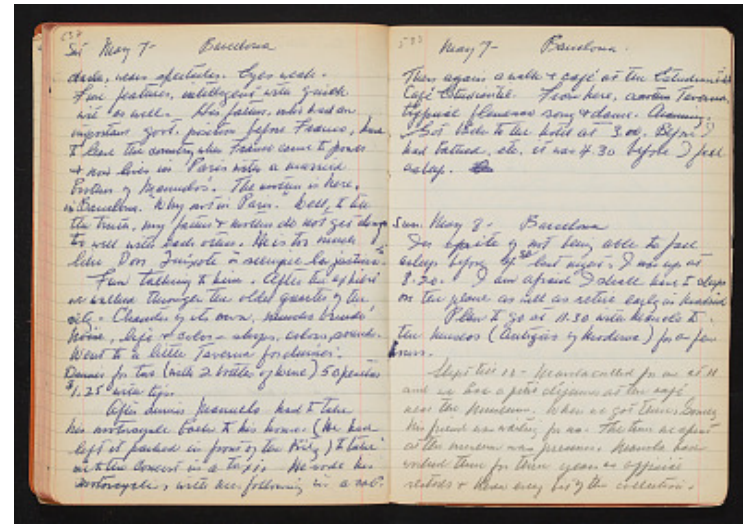 Sat May 7 - Barcelona
dark, wears spectacles. Eyes weak.
Fine features, intelligent with quick
wit as well. His father, who had an
important govt. position before Franco, had
to leave the country when Franco came to power
+ now lives in Paris with a married
brother of Manuelo's. The mother is here,
in Barcelona. "Why not in Paris." Well, to tell
the truth, my father + mother do not get along
too well with each other. He is too much
like Don Quixote
Fun talking to him. After the
we walked through the older quarter of the
city. Character of its own,
noise, life + color - shops,
Went to a little Taverna for dinner.
Dinner for two (with 2 bottles of wine) 50 pesetas
$1.25 with tips.
After dinner Manuelo had to take
his motorcycle back to his house (He had
left it parked in front of the Ritz) to take
me to the concert in a taxi. He rode his
motorcycle, with me following in a cab.
May 7 - Barcelona.
Then again a walk + café at the
Café Estudiantil. From here, a Taverna,
typical flamenco song + dance. Charming.
Got back to the hotel at 3.00. Before I
had bathed, etc. it was 4.30 before I fell
asleep.
Sun. May 8 - Barcelona
In spite of not being able to fall
asleep before last night, I was up at
8.20. I am afraid I shall have to sleep
on the plane as well as retire early in Madrid
Plan to go at 11.30 with Manolo to
the museos (Antiguos y Moderno) for a few
hours.
Slept till 10 - Manolo called for me at 11
and we had a petit déjeuner at the café
near the Museum. When we got there Gomez
his friend was waiting for us. The time we spent
at the museum was precious. Manolo had
worked there for three years as official
+ knew every bit of the collection.